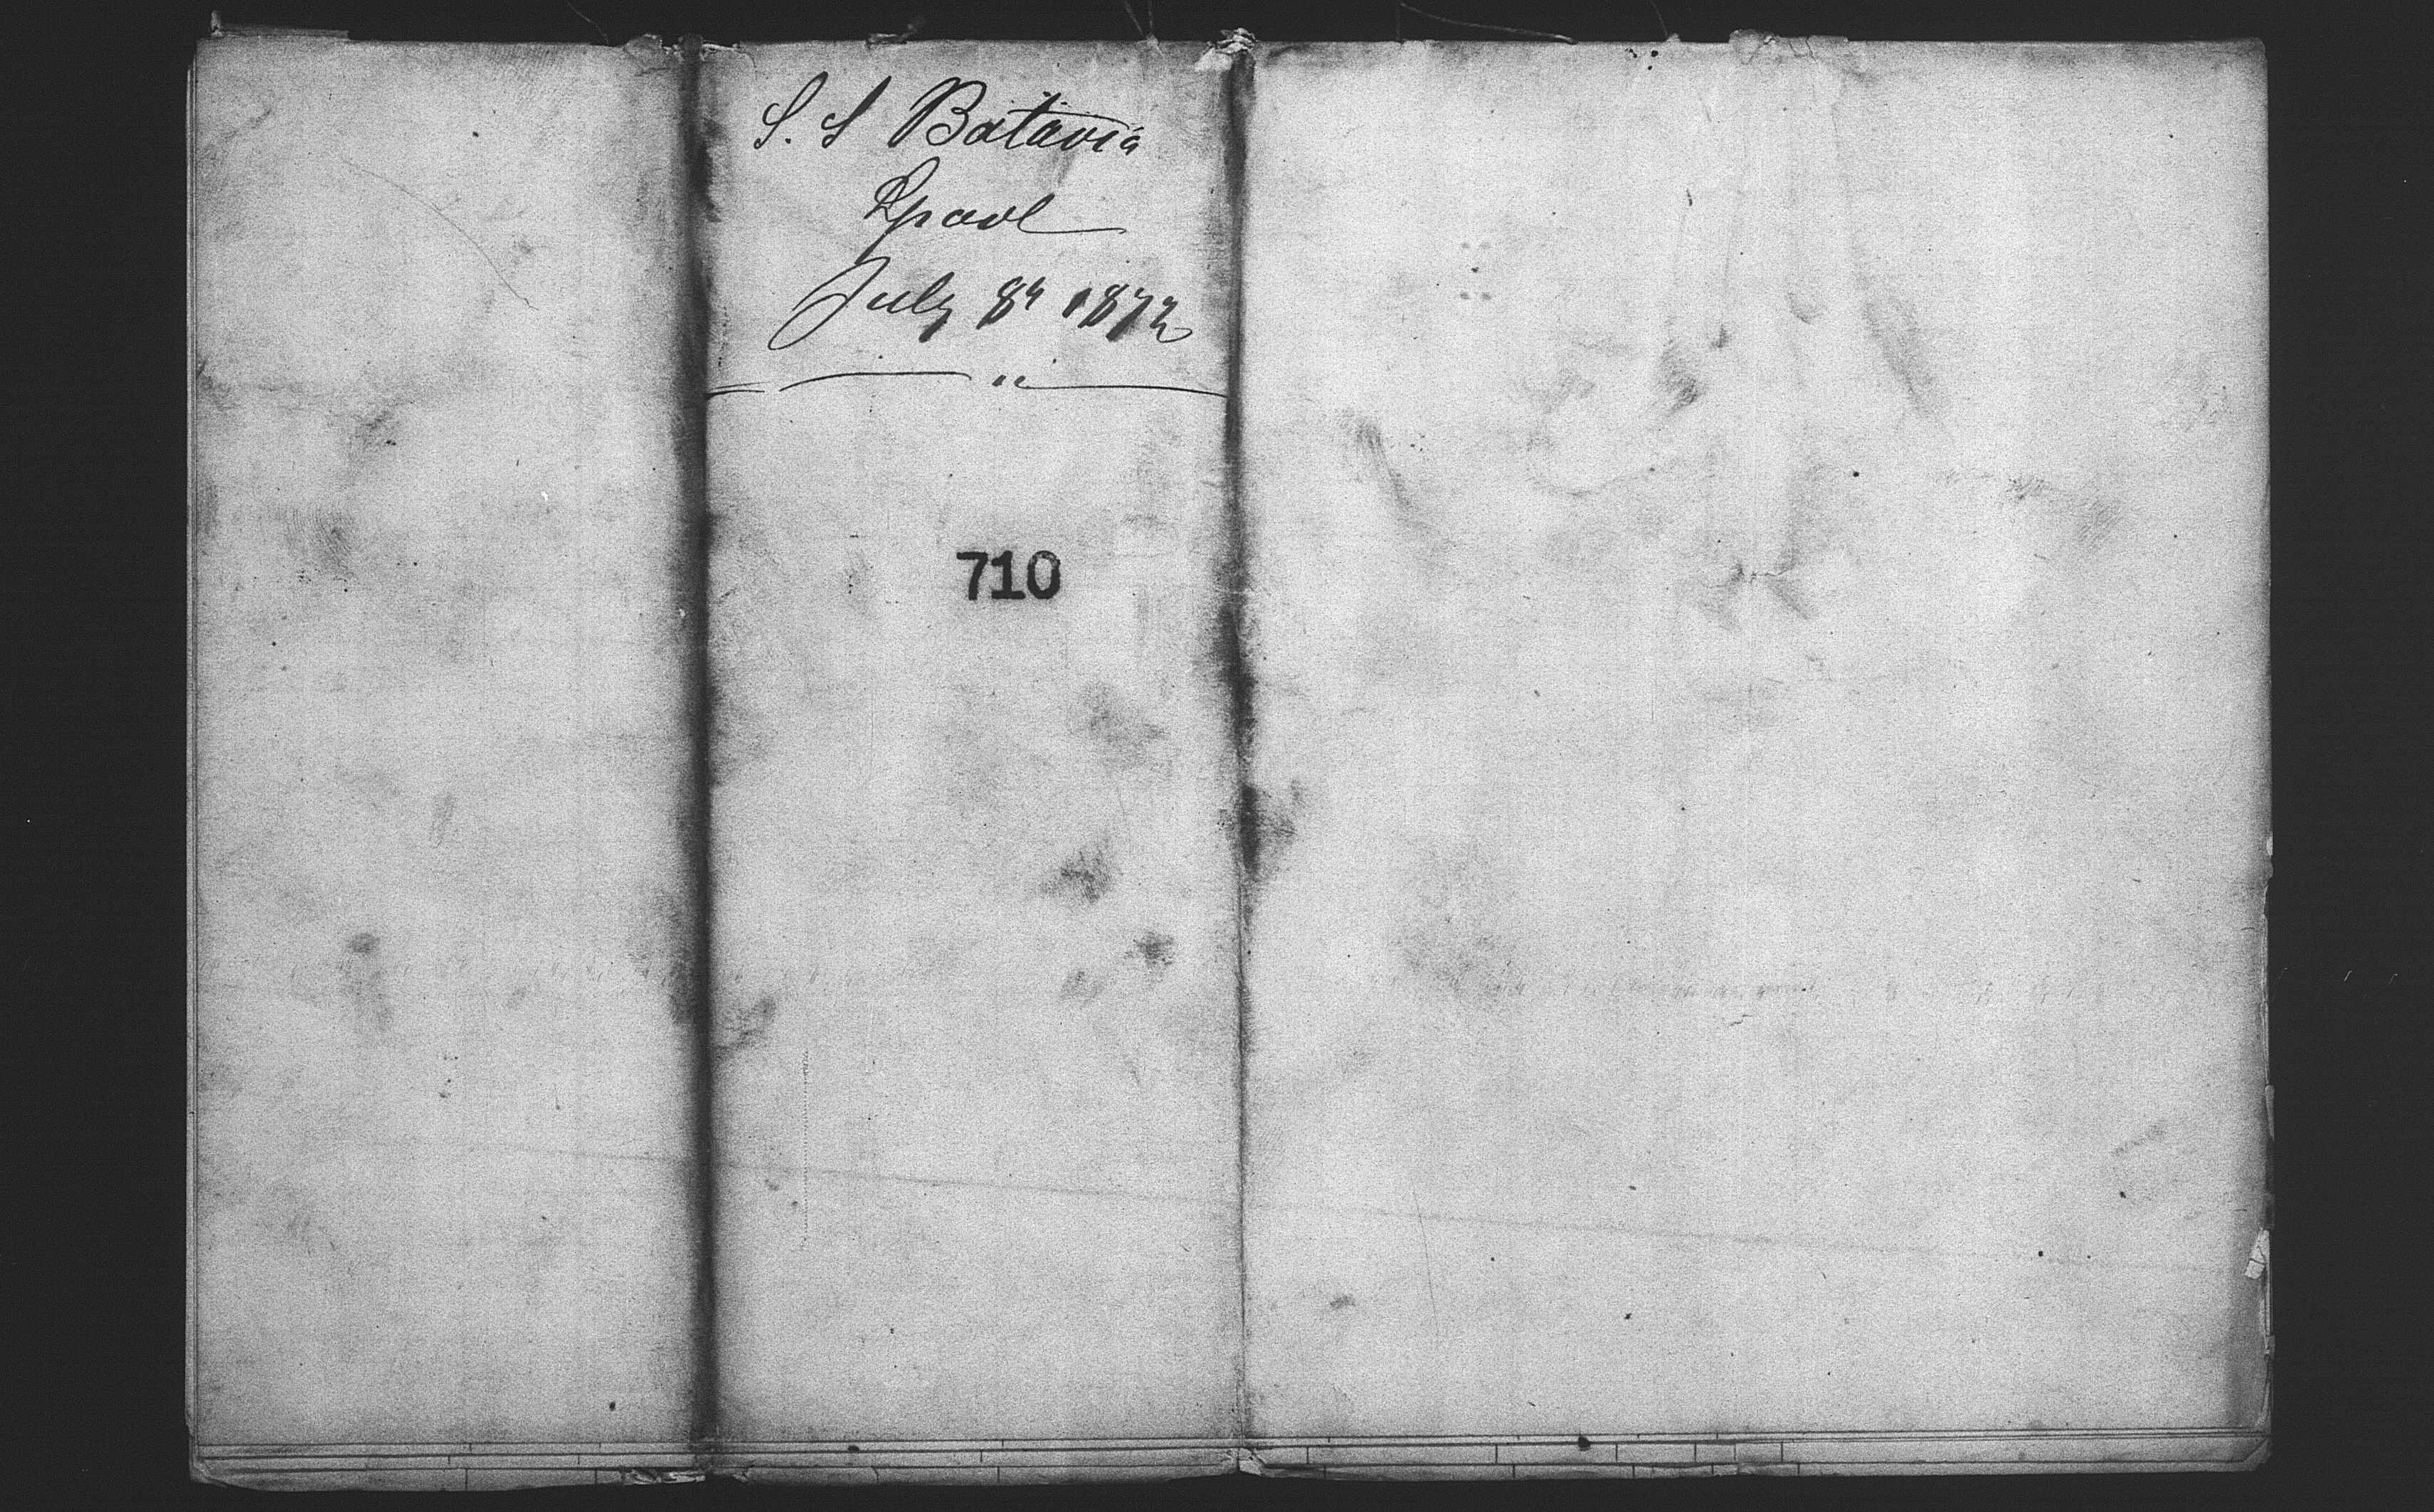 S. S Batavia
Lpool
July 8th 1872
710